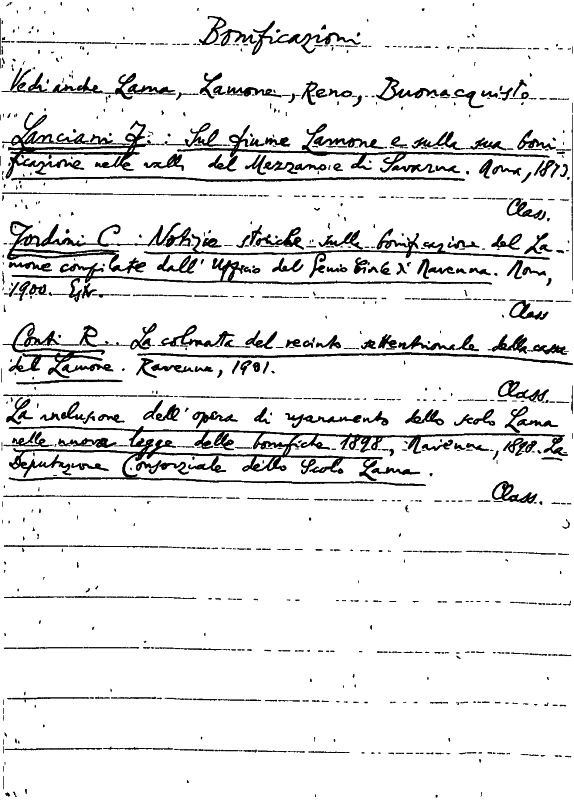 Bonificazioni
Vedi anche Lama, Lamone, Reno, Buonacquisto
Lanciani F. : Sul fiume Lamone e sulla sua boni-
ficazione nelle valli del Mezzano e di Savarna. Roma, 1873.
Class.
Jordini C. Notizie storiche sulla bonificazione del La-
mone compilate dall' Ufficio del Genio Civile di Ravenna. Roma,
1900. Estr.
Class
Conti R.. La colmata del recinto settentrionale della cassa
del Lamone. Ravenna, 1901.
Class.
La inclusione dell' opera di risanamento dello scolo Lama
nelle nuova legge delle bonifiche 1898, Ravenna, 1898. La
Deputazione Consorziale dello Scolo Lama.
Class.